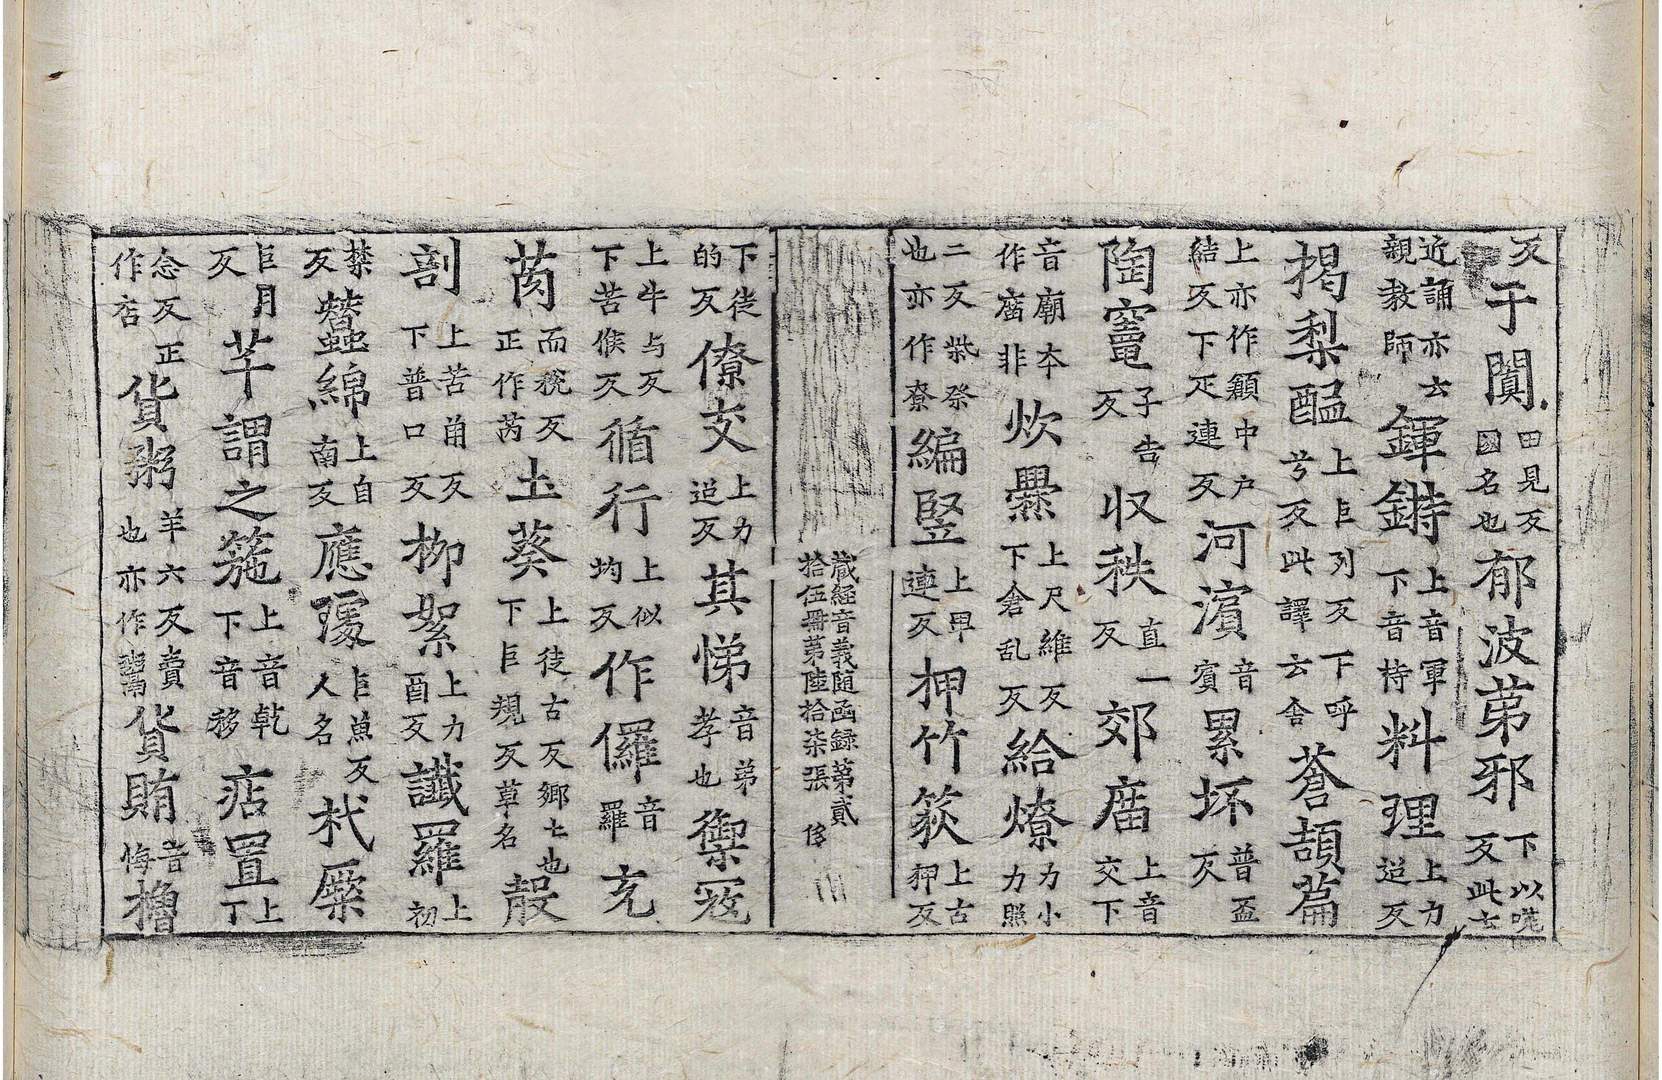 反于闐田見反國名也郁波苐邪下以嗟反此云
近誦亦云親教師鍕鍣上音軍下音持料理上力迢反
揭梨醖上巨列反下呼兮反此譯云舍蒼頡篇
上亦作顲中户結反下疋連反河濵音賓累坏普盃反
陶竈子告反収秩直一反郊庿上音交下
音廟本作庿非炊爨上尺維反下倉乱反給燎力小力照
二反祡祭也亦作尞編竪上卑連反押竹笯上古狎反
藏經音義随函録第貳拾伍冊第陸拾柒張 侈
下徒的反僚交上力迢反其悌音弟孝也禦寇
上牛与反下苦候反循行上似均反作儸音羅充
芮而稅反正作芮土葵上徒古反鄉土也下巨規反草名殸
剖上苦角反下普口反柳絮上力酉反讖羅上初
禁反蠶綿上自南反應璩巨魚反人名杙㢘
巨月反芊謂之箷上音乾下音移痁置上丁
念反正作店貨粥羊六反賣也亦作鬻貨賄音悔櫓